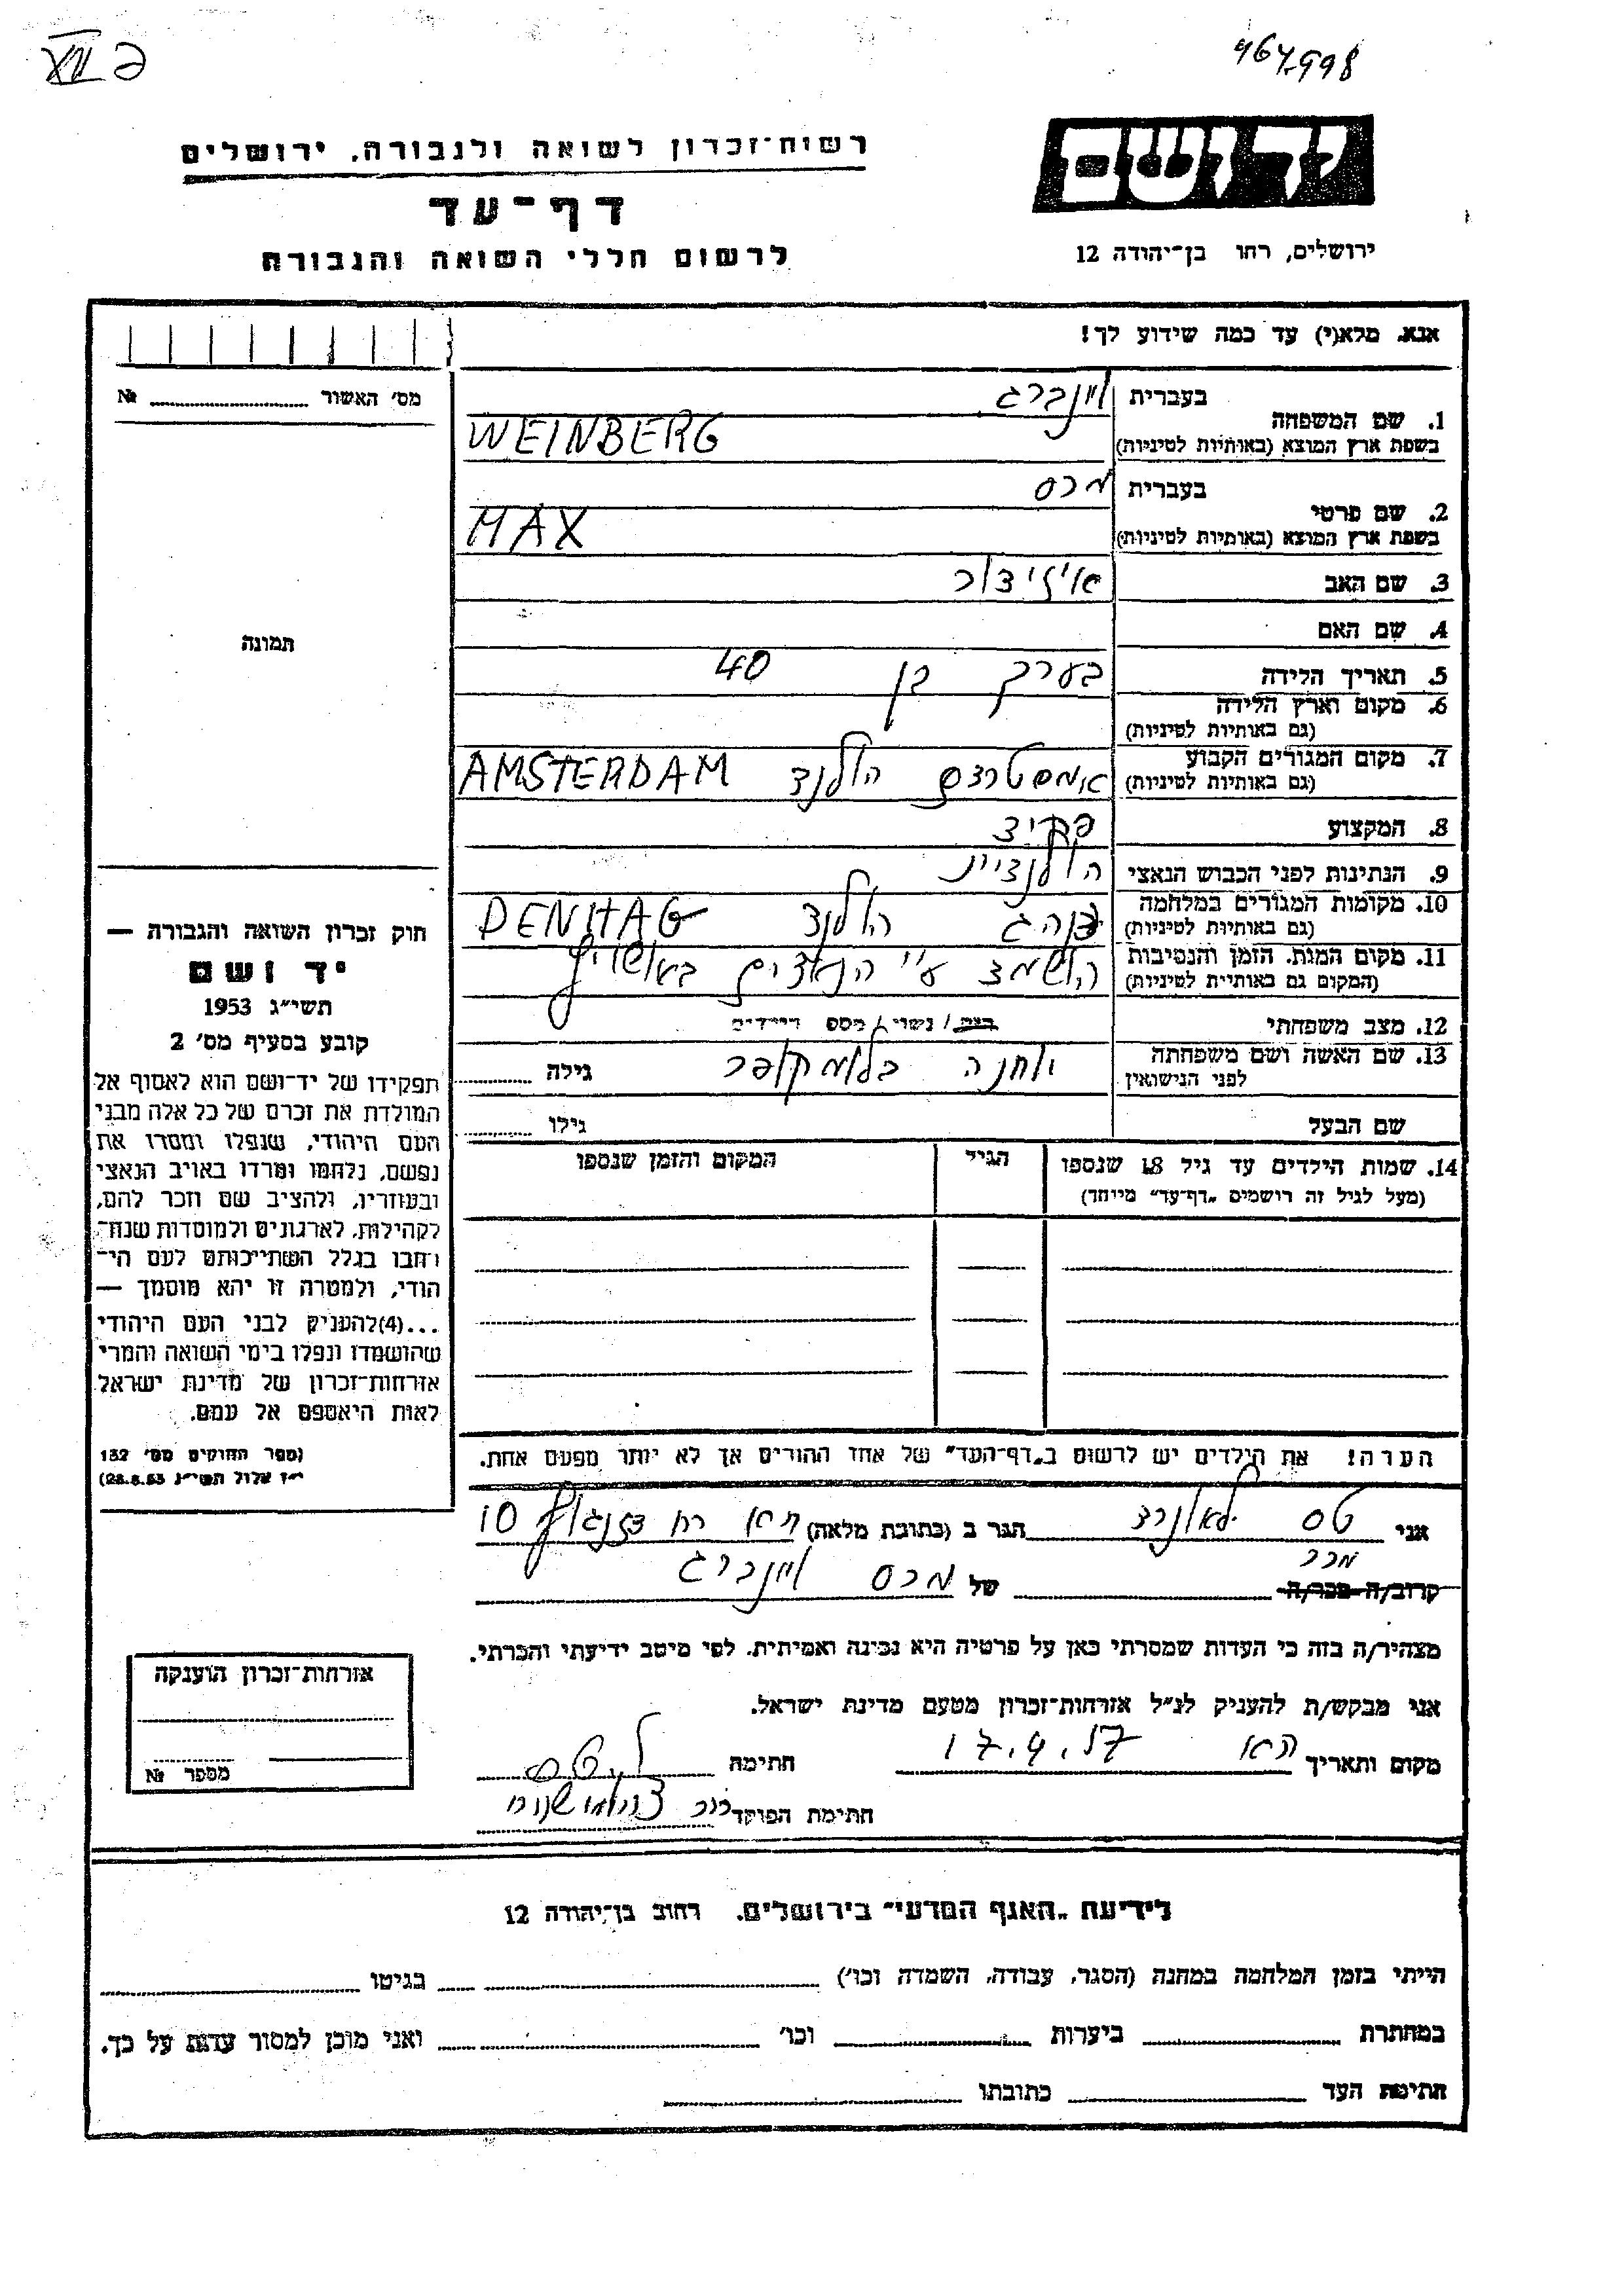 VII ב
464.998
יד ושם
ירושלים, רחו בן־יהודה 12
רשות־זכרון לשואה ולגבורה, ירושלים
דף־עד
לרשום חללי השואה והגבורה
אנא, מלא(י) עד כמה שידוע לך!
מס׳ האשור № 
תמונה
1. שם המשפחה בעברית ויינברג
בשפת ארץ המוצא (באותיות לטיניות) WEINBERG
2. שם פרטי בעברית מכס
בשפת ארץ המוצא (באותיות לטיניות) MAX
3. שם האב איזידור
4. שם האם
5. תאריך הלידה בערך בן 40
6. מקום וארץ הלידה
(גם באותיות לטיניות)
7. מקום המגורים הקבוע אמסטרדם הולנד AMSTERDAM
(גם באותיות לטיניות)
8. המקצוע פקיד
9. הנתינות לפני הכבוש הנאצי הולנדית
10. מקומות המגורים במלחמה דנהג הולנד DENHAG
(גם באותיות לטיניות)
11. מקום המות, הזמן והנסיבות הושמד ע״י הנאצים באושויץ
(המקום גם באותיות לטיניות)
12. מצב משפחתי רווק / נשוי / מספר הילדים
13. שם האשה ושם משפחתה יוחנה גילה
לפני הנישואין
שם הבעל גילו
14. שמות הילדים עד גיל 18 שנספו הגיל המקום והזמן שנספו
(מעל לגיל זה רושמים „דף־עד״ מייחד)
הערה! את הילדים יש לרשום ב„דף־העד״ של אחד ההורים אך לא יותר מפעם אחת.
חוק זכרון השואה והגבורה —
יד ושם
תשי״ג 1953
קובע בסעיף מס׳ 2
תפקידו של יד־ושם הוא לאסוף אל
המולדת את זכרם של כל אלה מבני
העם היהודי, שנפלו ומסרו את
נפשם, נלחמו ומרדו באויב הנאצי
ובעוזריו, ולהציב שם וזכר להם,
לקהילות, לארגונים ולמוסדות שנח־
רחבו בגלל השתייכותם לעם הי־
הודי, ולמטרה זו יהא מוסמך —
...(4)להעניק לבני העם היהודי
שהושמדו ונפלו בימי השואה והמרי
אזרחות־זכרון של מדינת ישראל
לאות היאספם אל עמם.
(ספר החוקים מס׳ 132
י״ז אלול תשי״ג 28.8.53)
אני טס לאונרד הגר ב (כתובת מלאה) ת״א רח דזנגוף 10
מכר
קרוב/ה מכר/ה של מכס ויינברג
מצהיר/ה בזה כי העדות שמסרתי כאן על פרטיה היא נכונה ואמיתית, לפי מיטב ידיעתי והכרתי.
אני מבקש/ת להעניק לנ״ל אזרחות־זכרון מטעם מדינת ישראל.
מקום ותאריך ת״א 17.4.57 חתימה ל. טס
חתימת הפוקד
אזרחות־זכרון הוענקה
מספר №
לידיעת „האגף המדעי״ בירושלים, רחוב בן־יהודה 12
הייתי בזמן המלחמה במחנה (הסגר, עבודה, השמדה וכו׳) בגיטו
במחתרת ביערות וכו׳ ואני מוכן למסור עדות על כך.
חתימת העד כתובתו